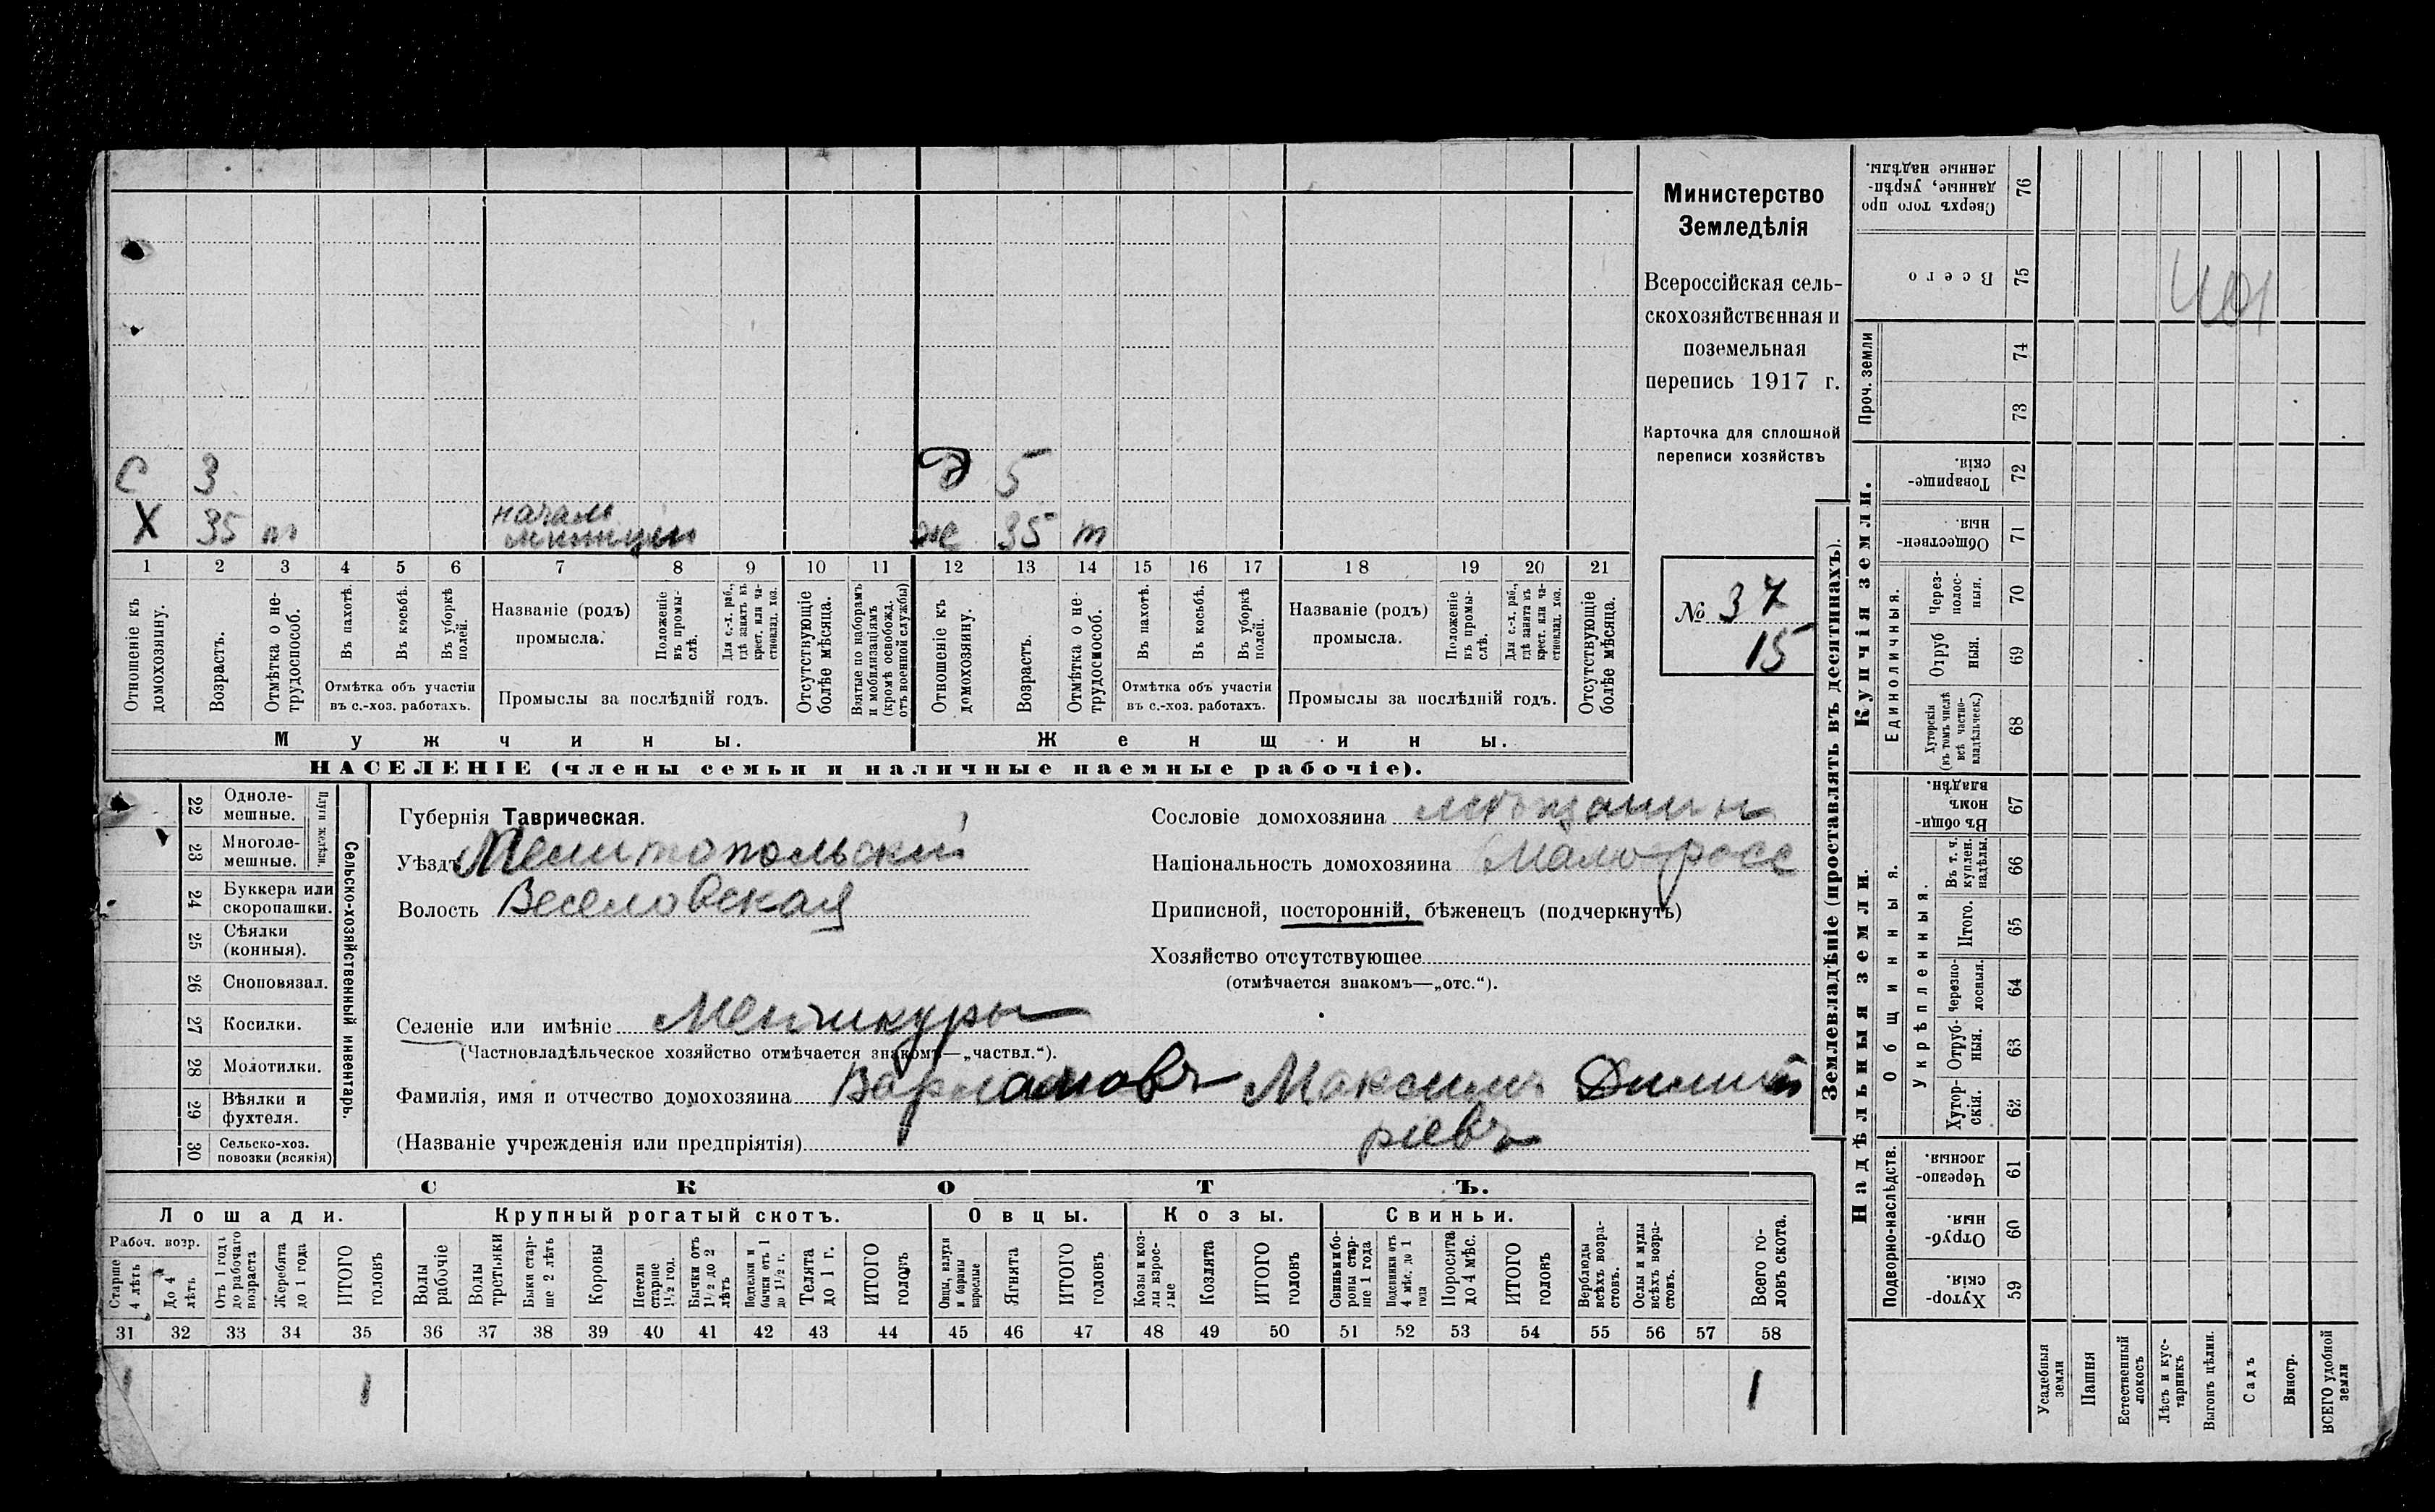 С 3 д 5
Х 35 т начал ж 35 т
милиціи
1 2 3 4 5 6 7 8 9 10 11 12 13 14 15 16 17 18 19 20 21
Отношеніе къ домохозяину.
Возрастъ.
Отмѣтка о не-трудоспособ.
Въ пахотѣ.
Въ косьбѣ.
Въ уборкѣ полей.
Отмѣтка объ участіи
въ с.-хоз. работахъ.
Названіе (родъ)
промысла.
Положеніе въ промы-слѣ.
Для с.-х. раб., гдѣ занятъ въ крест. или ча-стновлад. хоз.
Промыслы за послѣдній годъ.
Отсутствующіе болѣе мѣсяца.
Взятые по наборамъ и мобилизаціямъ (кромѣ освобожд. отъ военной службы)
Отношеніе къ домохозяину.
Возрастъ.
Отмѣтка о не-трудоспособ.
Въ пахотѣ.
Въ косьбѣ.
Въ уборкѣ полей.
Отмѣтка объ участіи
въ с.-хоз. работахъ.
Названіе (родъ)
промысла.
Положеніе въ промы-слѣ.
Для с.-х. раб., гдѣ занята въ крест. или ча-стновлад. хоз.
Промыслы за послѣдній годъ.
Отсутствующіе болѣе мѣсяца.
Мужчины. Женщины.
НАСЕЛЕНІЕ (члены семьи и наличные наемные рабочіе).
Министерство
Земледѣлія
Всероссійская сель-
скохозяйственная и
поземельная
перепись 1917 г.
Карточка для сплошной
переписи хозяйствъ
№ 37
15
22 Одноле-мешные.
23 Многоле-мешные.
Плуги желѣзн.
24 Буккера или скоропашки.
25 Сѣялки (конныя).
26 Сноповязал.
27 Косилки.
28 Молотилки.
29 Вѣялки и фухтеля.
30 Сельско-хоз. повозки (всякія)
Сельско-хозяйственный инвентарь.
Губернія Таврическая.
Уѣздъ Мелитопольскій
Волость Веселовская
Сословіе домохозяина мѣщанин
Національность домохозяина Малоросс
Приписной, посторонній, бѣженецъ (подчеркнуть)
Хозяйство отсутствующее
(отмѣчается знакомъ—„отс.“).
Селеніе или имѣніе Менчикуры
(Частновладѣльческое хозяйство отмѣчается знакомъ—„частвл.“).
Фамилія, имя и отчество домохозяина Варламовъ Максимъ Димит
(Названіе учрежденія или предпріятія) ріевъ
СКОТЪ.
Лошади. Крупный рогатый скотъ. Овцы. Козы. Свиньи.
Рабоч. возр.
Старше 4 лѣтъ
До 4 лѣтъ
Отъ 1 года до рабочаго возраста
Жеребята до 1 года
ИТОГО головъ
Волы рабочіе
Волы третьяки
Быки стар-ше 2 лѣтъ
Коровы
Нетели старше 1½ год.
Бычки отъ 1½ до 2 лѣтъ
Подтелки и бычки отъ 1 до 1½ г.
Телята до 1 г.
ИТОГО головъ
Овцы, валухи и бараны взрослые
Ягнята
ИТОГО головъ
Козы и коз-лы взрос-лые
Козлята
ИТОГО головъ
Свиньи и бо-ровы стар-ше 1 года
Подсвинки отъ 4 мѣс. до 1 года
Поросята до 4 мѣс.
ИТОГО головъ
Верблюды всѣхъ возра-стовъ.
Ослы и мулы всѣхъ возра-стовъ.
Всего го-ловъ скота.
31 32 33 34 35 36 37 38 39 40 41 42 43 44 45 46 47 48 49 50 51 52 53 54 55 56 57 58
1 1 1
Землевладѣніе (проставлять въ десятинахъ).
Купчія земли.
Надѣльныя земли.
Сверхъ того про-данные, укрѣп-ленные надѣлы. 76
Всего 75
Проч. земли 74
73
Товарище-скія. 72
Обществен-ныя. 71
Единоличныя.
Через-полос-ныя. 70
Отруб ныя. 69
Хуторскія (въ томъ числѣ всѣ частно-владѣльческ.) 68
Общинныя.
Въ общи-номъ владѣн. 67
Укрѣпленныя.
Въ т. ч. куплен. надѣлы. 66
Итого. 65
Черезпо-лосныя. 64
Отруб-ныя. 63
Хутор-скія. 62
Подворно-наслѣдств.
Черезпо-лосныя. 61
Отруб-ныя. 60
Хутор-скія. 59
Усадебныя земли
Пашня
Естественный покосъ
Лѣсъ и кус-тарникъ
Выгонъ цѣлин.
Садъ
Виногр.
ВСЕГО удобной земли